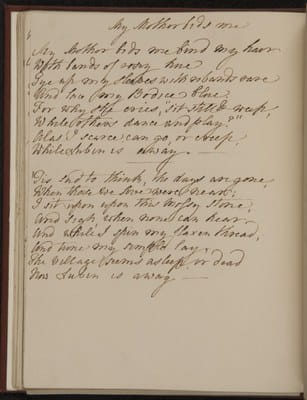 My Mother bids me
My Mother bids me bind my hair
With bands of rosy hue
Tye up my sleeves with ribands rare
And lace my Bodice blue.
For why She cries, "sit still & weep,
While others dance and play?"
Alas I scarce can go, or creep
While Lubin is away.
'Tis sad to think, the days are gone,
When those we love were near;
I sit upon upon this mossy stone,
And sigh when none can hear.
And while I spin my flaxen thread,
And tune my simple lay,
The village seems asleep or dead
Now Lubin is away